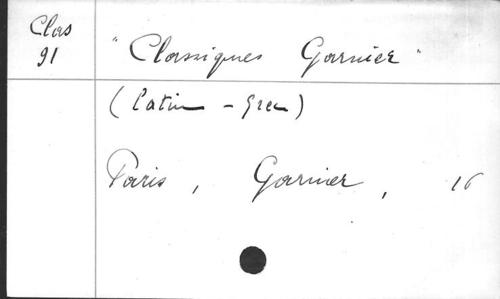 Clas
91
"Classiques Garnier"
(Latin - Grec)
Paris, Garnier, 16